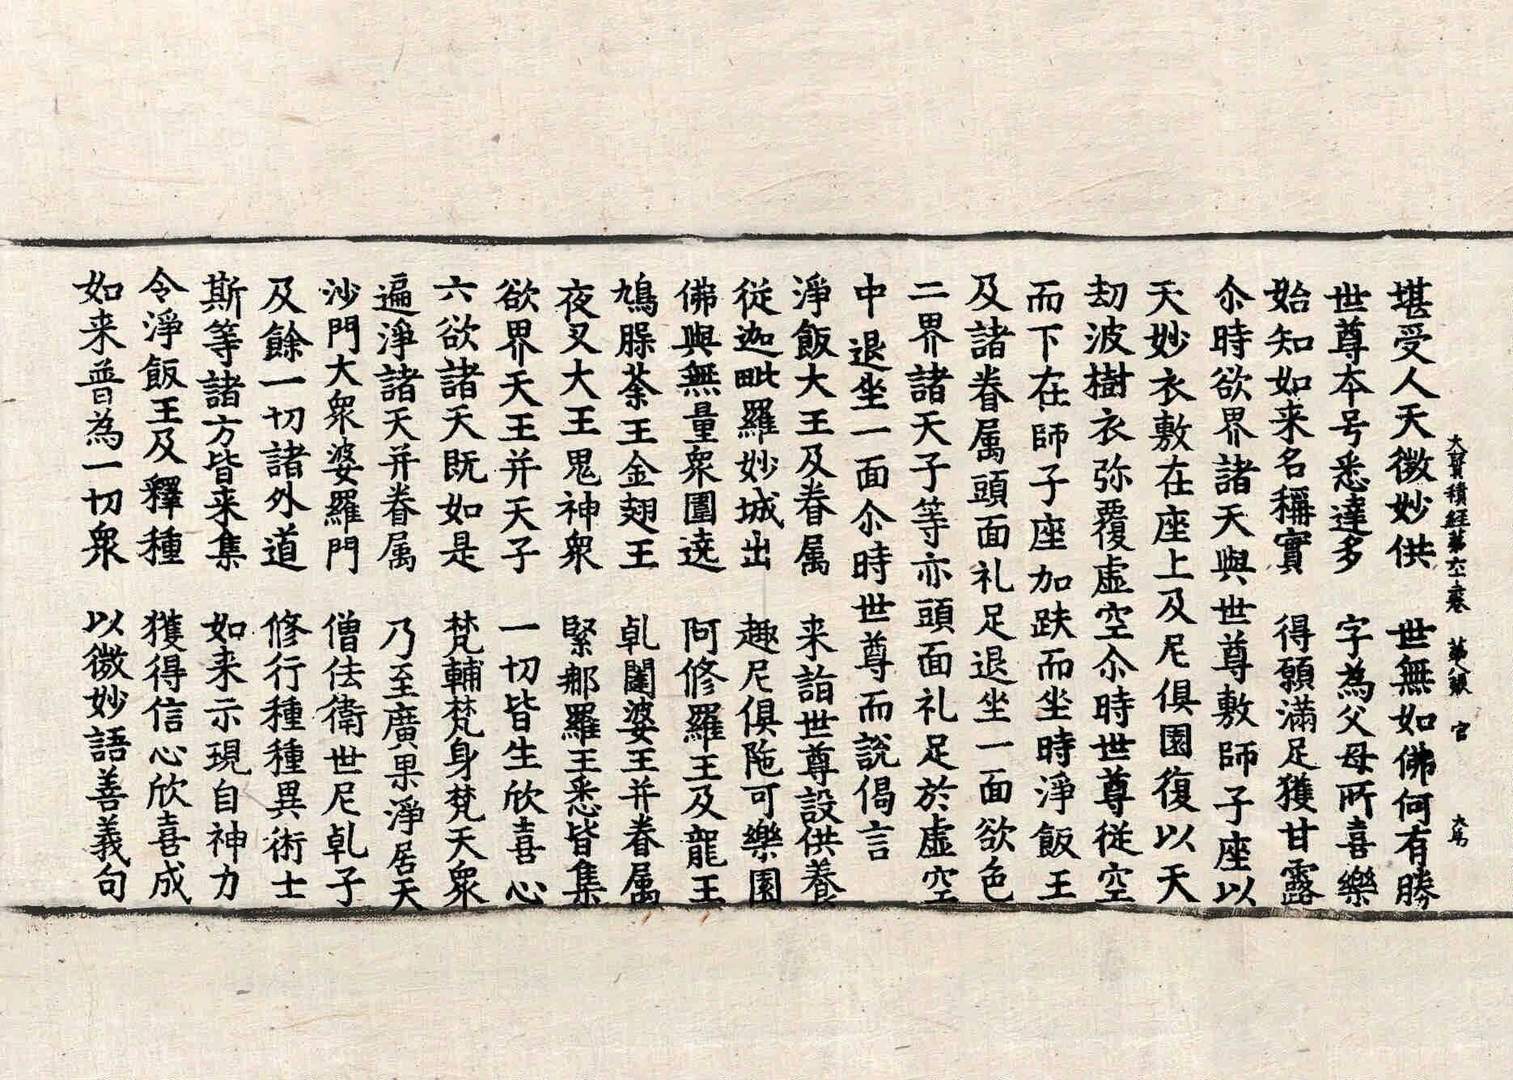 大寶積經第六十一卷　第八張　官　大有
堪受人天微妙供　世無如佛何有勝
世尊本号悉達多　字為父母所喜樂
始知如来名稱實　得願滿足獲甘露
尒時欲界諸天與世尊敷師子座以
天妙衣敷在座上及尼俱園復以天
劫波樹衣弥覆虛空尒時世尊從空
而下在師子座加趺而坐時淨飯王
及諸眷属頭面礼足退坐一面欲色
二界諸天子等亦頭面礼足於虛空
中退坐一面尒時世尊而說偈言
淨飯大王及眷属　来詣世尊設供養
從迦毗羅妙城出　趣尼俱陁可樂園
佛與無量衆圍遶　阿修羅王及龍王
鳩腺荼王金翅王　乹闥婆王并眷属
夜叉大王鬼神衆　緊那羅王悉皆集
欲界天王并天子　一切皆生欣喜心
六欲諸天既如是　梵輔梵身梵天衆
遍淨諸天并眷属　乃至廣果淨居天
沙門大衆婆羅門　僧佉衛世尼乹子
及餘一切諸外道　修行種種異術士
斯等諸方皆来集　如来示現自神力
令淨飯王及釋種　獲得信心欣喜成
如来普為一切衆　以微妙語善義句